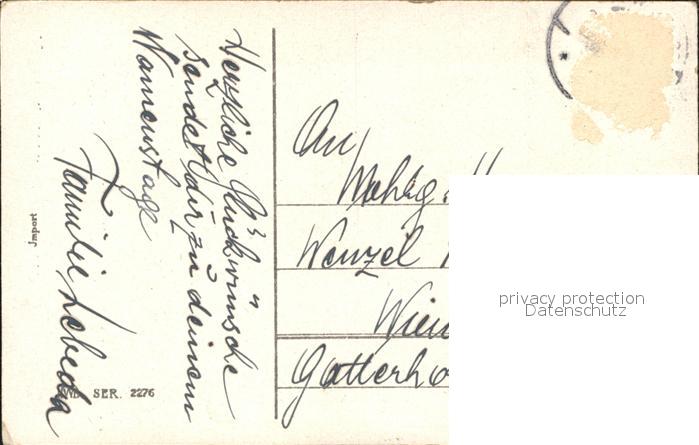 Herzliche Glückwünsche
sendet dir zu deinem
Namenstage
Familie Lebeda
An
Wohlg. H
Wenzel
Wien
Gatterho
privacy protection
Datenschutz
Import
SER. 2276